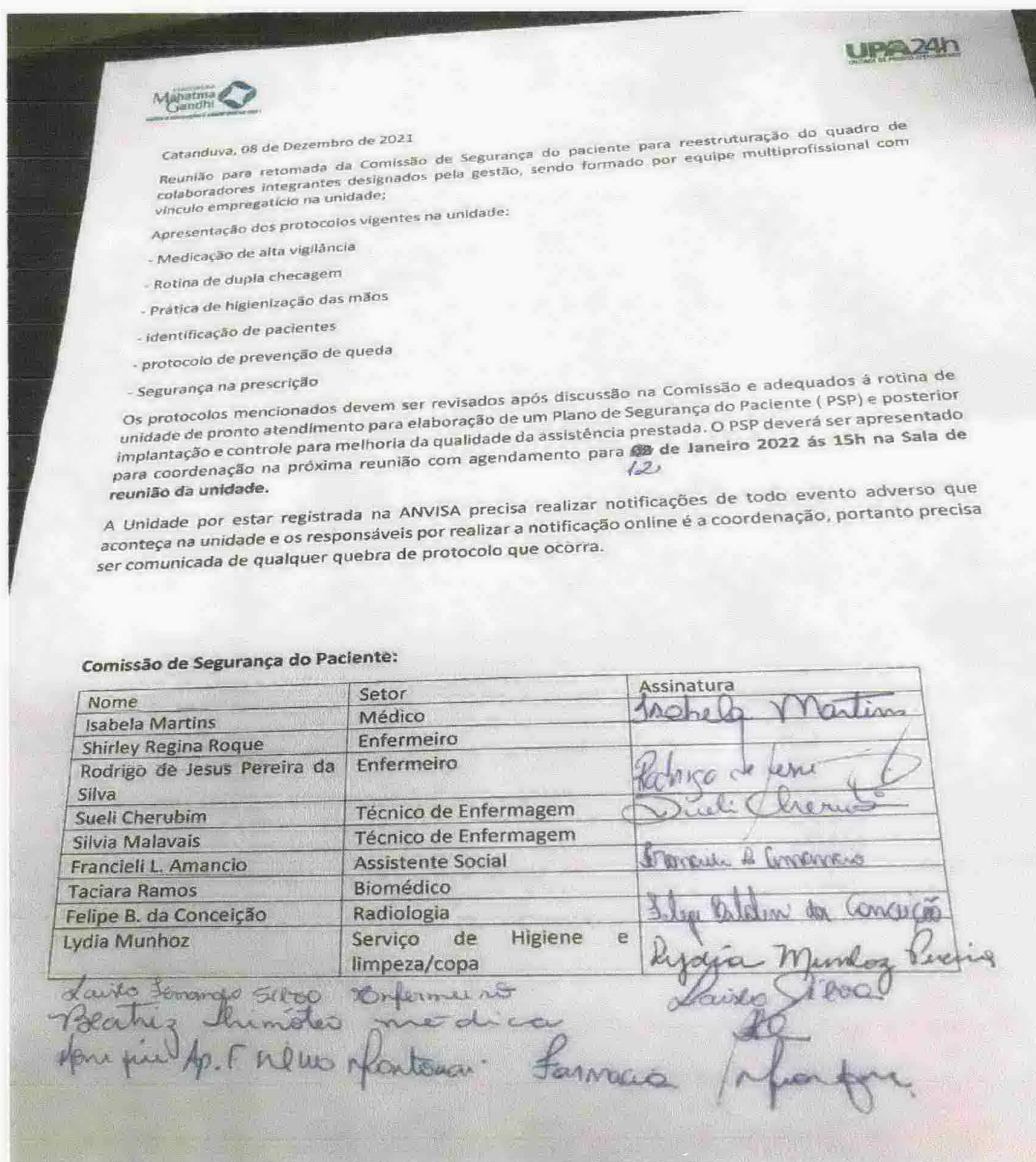 UPA24h
Mahatma
Gandhi
Catanduva, 08 de Dezembro de 2021
Reunião para retomada da Comissão de Segurança do paciente para reestruturação do quadro de
colaboradores integrantes designados pela gestão, sendo formado por equipe multiprofissional com
vínculo empregatício na unidade;
Apresentação dos protocolos vigentes na unidade:
- Medicação de alta vigilância
- Rotina de dupla checagem
- Prática de higienização das mãos
- identificação de pacientes
- protocolo de prevenção de queda
- Segurança na prescrição
Os protocolos mencionados devem ser revisados após discussão na Comissão e adequados á rotina de
unidade de pronto atendimento para elaboração de um Plano de Segurança do Paciente ( PSP) e posterior
implantação e controle para melhoria da qualidade da assistência prestada. O PSP deverá ser apresentado
para coordenação na próxima reunião com agendamento para de Janeiro 2022 ás 15h na Sala de
12
reunião da unidade.
A Unidade por estar registrada na ANVISA precisa realizar notificações de todo evento adverso que
aconteça na unidade e os responsáveis por realizar a notificação online é a coordenação, portanto precisa
ser comunicada de qualquer quebra de protocolo que ocorra.
Comissão de Segurança do Paciente:
Nome Setor Assinatura
Isabela Martins Médico Isabela Martins
Shirley Regina Roque Enfermeiro
Rodrigo de Jesus Pereira da Enfermeiro Rodrigo de Jesus
Silva
Sueli Cherubim Técnico de Enfermagem Sueli Cherubim
Silvia Malavais Técnico de Enfermagem
Francieli L. Amancio Assistente Social
Taciara Ramos Biomédico
Felipe B. da Conceição Radiologia Felipe da Conceição
Lydia Munhoz Serviço de Higiene e Lydia Munhoz
limpeza/copa
Fernando Silva Enfermeiro Silva
Beatriz médica
Ap. F Farmacia